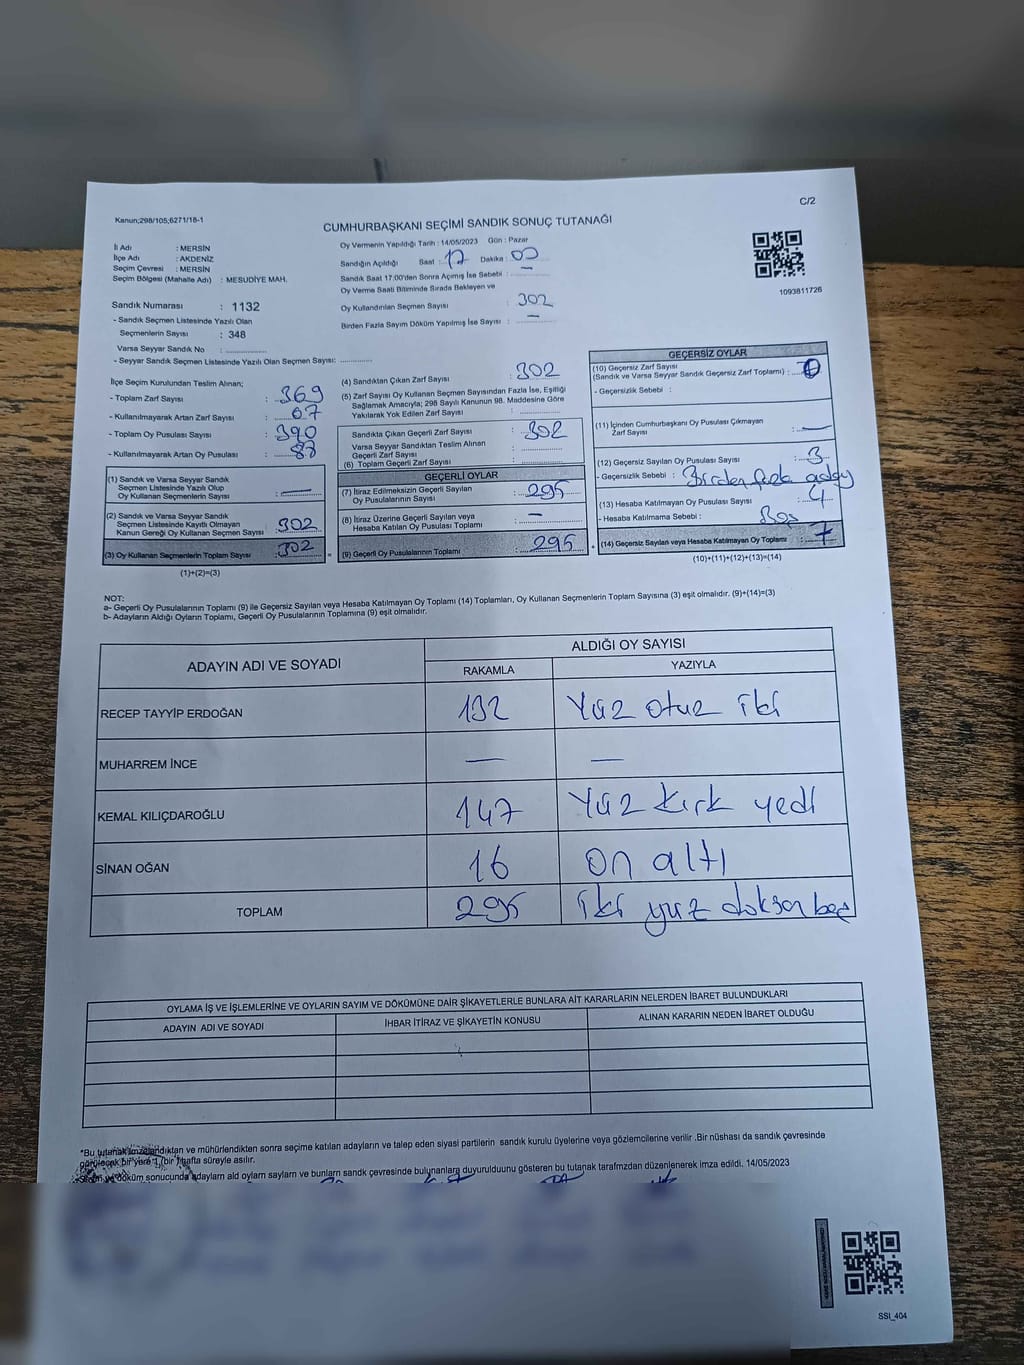 Kanun;298/105;6271/18-1
C/2
CUMHURBAŞKANI SEÇİMİ SANDIK SONUÇ TUTANAĞI
İl Adı : MERSİN
İlçe Adı : AKDENİZ
Seçim Çevresi : MERSİN
Seçim Bölgesi (Mahalle Adı) : MESUDİYE MAH.
Oy Vermenin Yapıldığı Tarih : 14/05/2023 Gün : Pazar
Sandığın Açıldığı Saat : 17 Dakika : 00
Sandık Saat 17:00'den Sonra Açımış İse Sebebi : —
Oy Verme Saati Bitiminde Sırada Bekleyen ve
Oy Kullandırılan Seçmen Sayısı : 302
Birden Fazla Sayım Döküm Yapılmış İse Sayısı : —
1093811726
Sandık Numarası : 1132
- Sandık Seçmen Listesinde Yazılı Olan
Seçmenlerin Sayısı : 348
Varsa Seyyar Sandık No :
- Seyyar Sandık Seçmen Listesinde Yazılı Olan Seçmen Sayısı:
İlçe Seçim Kurulundan Teslim Alınan;
- Toplam Zarf Sayısı : 369
- Kullanılmayarak Artan Zarf Sayısı : 67
- Toplam Oy Pusulası Sayısı : 390
- Kullanılmayarak Artan Oy Pusulası : 88
(1) Sandık ve Varsa Seyyar Sandık
Seçmen Listesinde Yazılı Olup
Oy Kullanan Seçmenlerin Sayısı : —
(2) Sandık ve Varsa Seyyar Sandık
Seçmen Listesinde Kayıtlı Olmayan
Kanun Gereği Oy Kullanan Seçmen Sayısı : 302
(3) Oy Kullanan Seçmenlerin Toplam Sayısı : 302
(1)+(2)=(3)
(4) Sandıktan Çıkan Zarf Sayısı : 302
(5) Zarf Sayısı Oy Kullanan Seçmen Sayısından Fazla İse, Eşitliği
Sağlamak Amacıyla; 298 Sayılı Kanunun 98. Maddesine Göre
Yakılarak Yok Edilen Zarf Sayısı :
Sandıkta Çıkan Geçerli Zarf Sayısı : 302
Varsa Seyyar Sandıktan Teslim Alınan
Geçerli Zarf Sayısı :
(6) Toplam Geçerli Zarf Sayısı :
GEÇERLİ OYLAR
(7) İtiraz Edilmeksizin Geçerli Sayılan
Oy Pusulalarının Sayısı : 295
(8) İtiraz Üzerine Geçerli Sayılan veya
Hesaba Katılan Oy Pusulası Toplamı : —
(9) Geçerli Oy Pusulalarının Toplamı : 295
GEÇERSİZ OYLAR
(10) Geçersiz Zarf Sayısı
(Sandık ve Varsa Seyyar Sandık Geçersiz Zarf Toplamı) :
- Geçersizlik Sebebi :
(11) İçinden Cumhurbaşkanı Oy Pusulası Çıkmayan
Zarf Sayısı : —
(12) Geçersiz Sayılan Oy Pusulası Sayısı : 3
- Geçersizlik Sebebi : Birden fazla aday
(13) Hesaba Katılmayan Oy Pusulası Sayısı : 4
- Hesaba Katılmama Sebebi : Boş
(14) Geçersiz Sayılan veya Hesaba Katılmayan Oy Toplamı : 7
(10)+(11)+(12)+(13)=(14)
NOT:
a- Geçerli Oy Pusulalarının Toplamı (9) ile Geçersiz Sayılan veya Hesaba Katılmayan Oy Toplamı (14) Toplamları, Oy Kullanan Seçmenlerin Toplam Sayısına (3) eşit olmalıdır. (9)+(14)=(3)
b- Adayların Aldığı Oyların Toplamı, Geçerli Oy Pusulalarının Toplamına (9) eşit olmalıdır.
ADAYIN ADI VE SOYADI
ALDIĞI OY SAYISI
RAKAMLA YAZIYLA
RECEP TAYYİP ERDOĞAN 132 Yüz otuz iki
MUHARREM İNCE — —
KEMAL KILIÇDAROĞLU 147 Yüz kırk yedi
SİNAN OĞAN 16 On altı
TOPLAM 295 iki yüz doksan beş
OYLAMA İŞ VE İŞLEMLERİNE VE OYLARIN SAYIM VE DÖKÜMÜNE DAİR ŞİKAYETLERLE BUNLARA AİT KARARLARIN NELERDEN İBARET BULUNDUKLARI
ADAYIN ADI VE SOYADI İHBAR İTİRAZ VE ŞİKAYETİN KONUSU ALINAN KARARIN NEDEN İBARET OLDUĞU
*Bu tutanak imzalandıktan ve mühürlendikten sonra seçime katılan adayların ve talep eden siyasi partilerin sandık kurulu üyelerine veya gözlemcilerine verilir .Bir nüshası da sandık çevresinde
görülecek bir yere 1 (bir) hafta süreyle asılır.
döküm sonucunda adaylarn aid oylarn sayılarn ve bunların sandık çevresinde bulunanlara duyurulduunu gösteren bu tutanak tarafmzdan düzenlenerek imza edildi. 14/05/2023
SSI_404